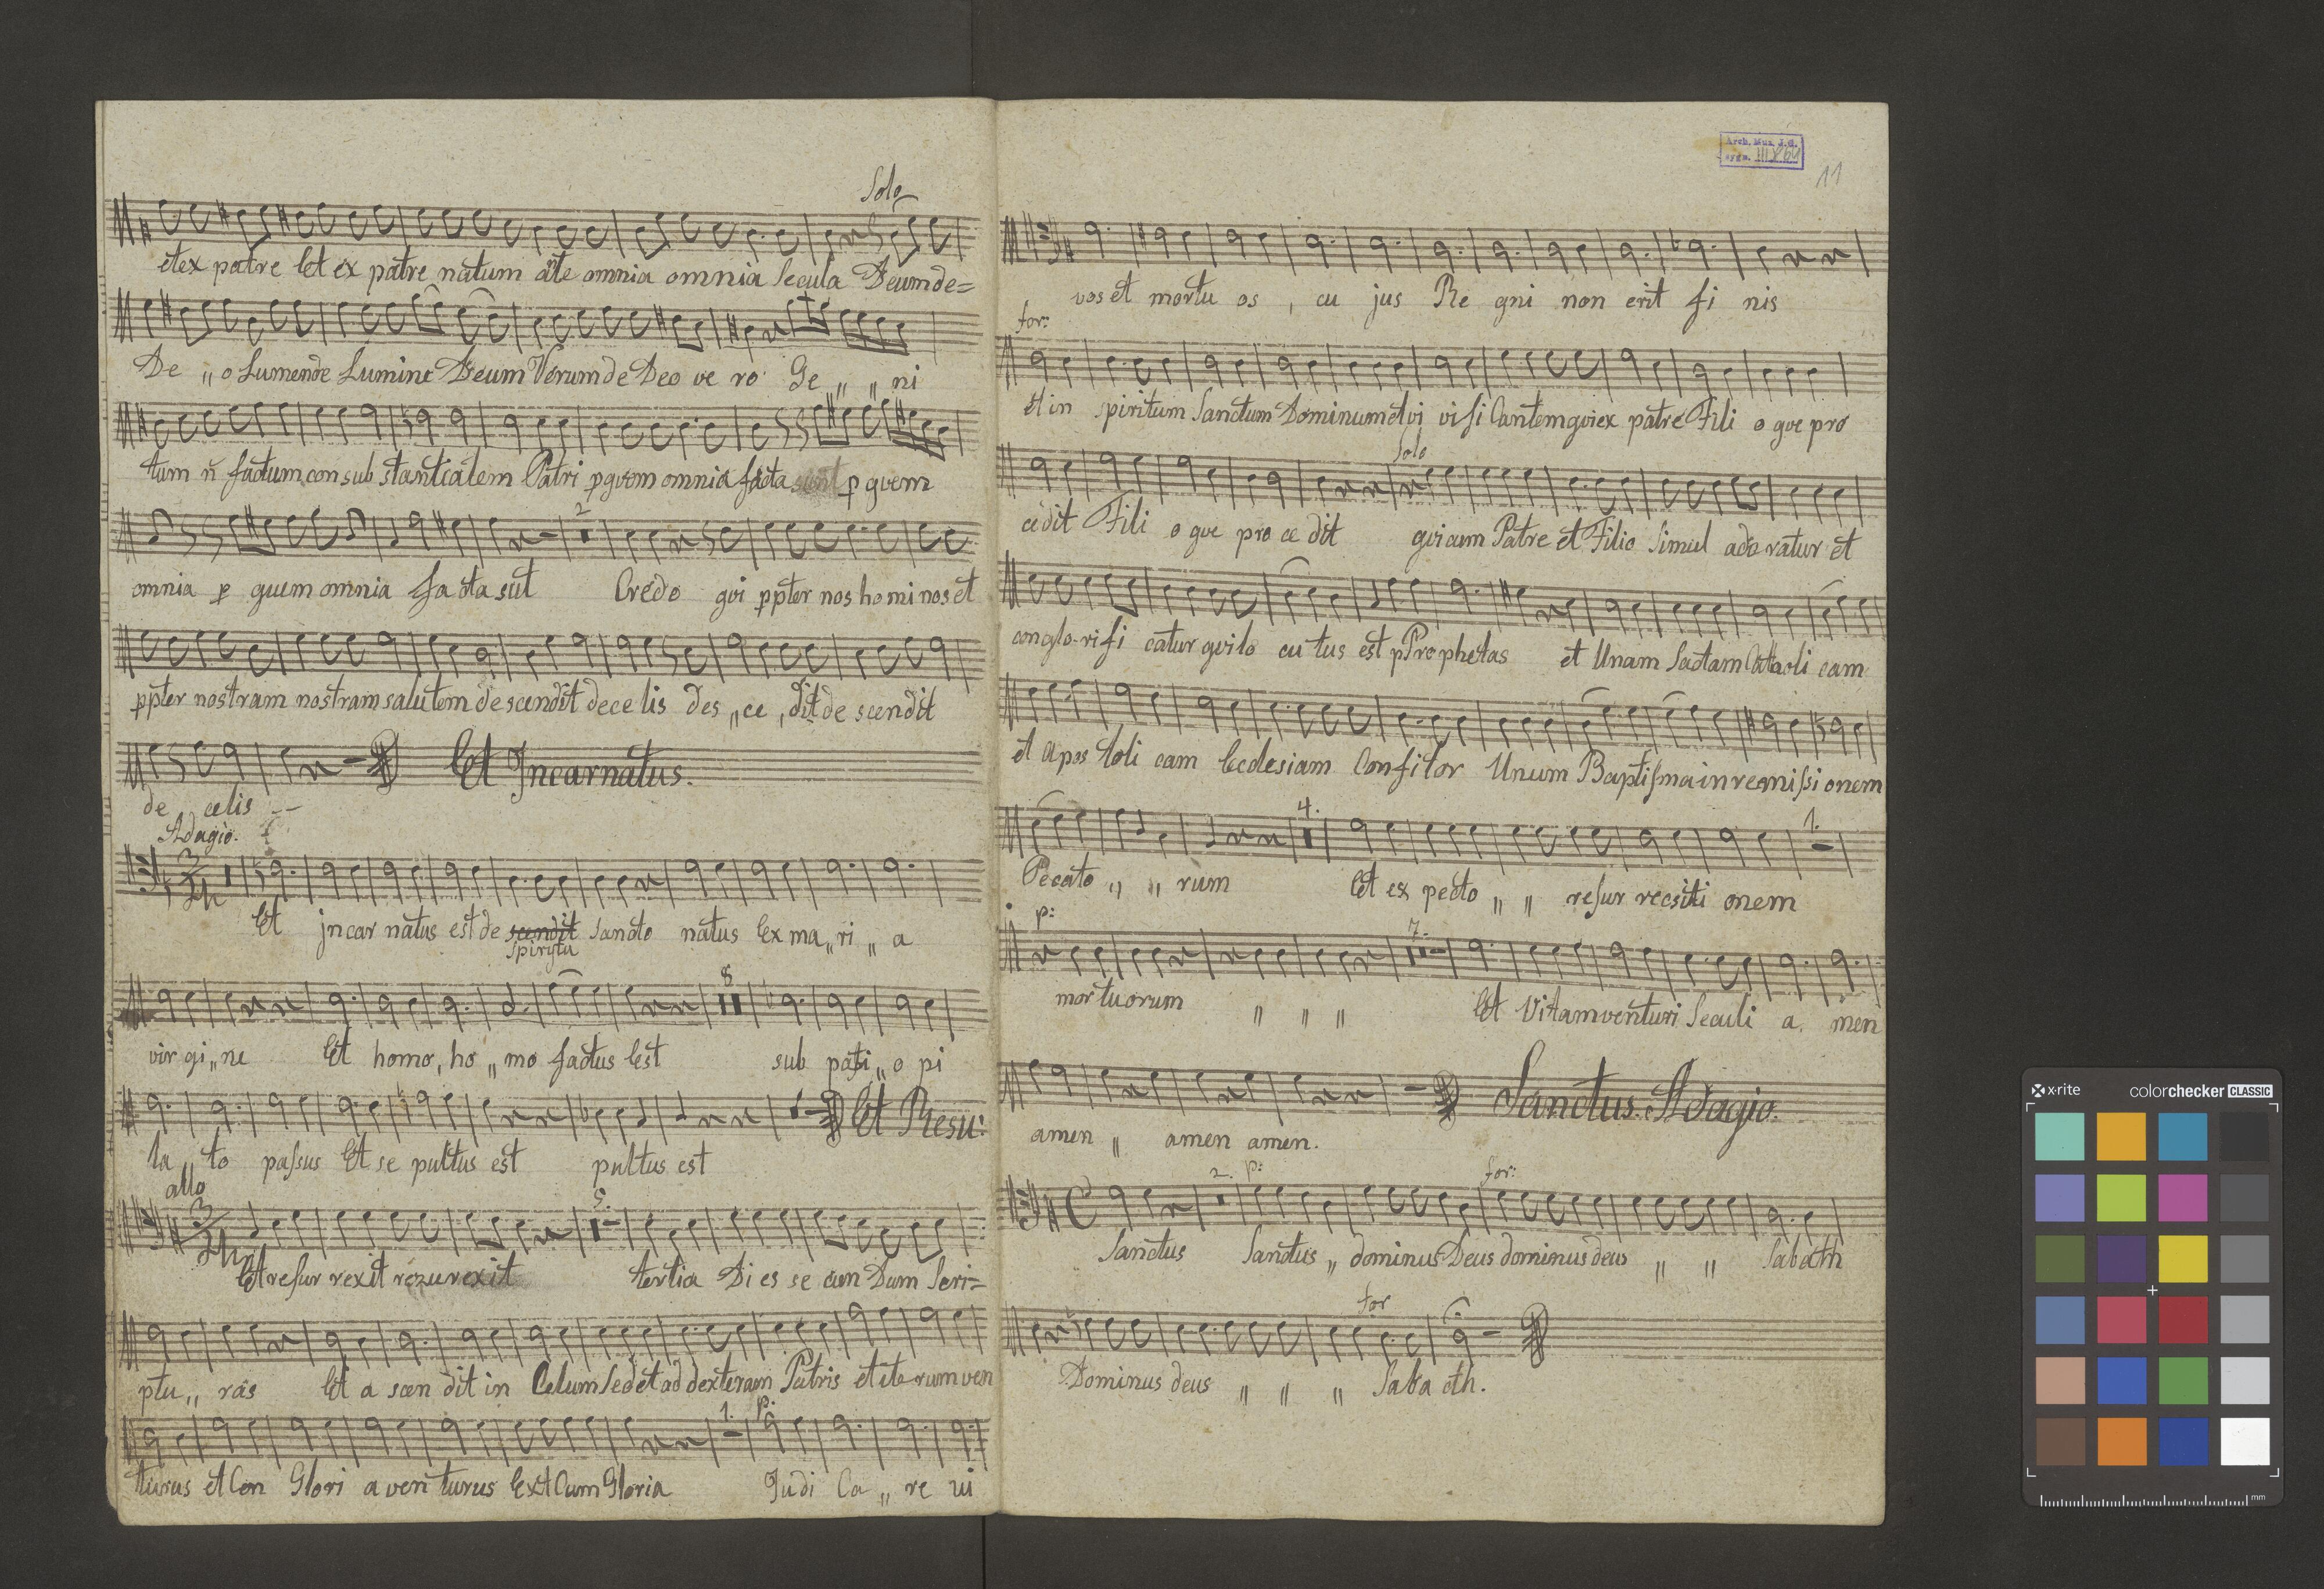 Solo
et ex patre Et ex patre natum ãte omnia omnia Secula Deum de=
De „ o Lumen de Lumine Deum Verum de Deo ve ro Ge „ „ ni
tum ñ factum con sub stantialem Patri p quem omnia facta sunt p quem
2
omnia p quem omnia facta sũt Credo qui ppter nos homi nos et
ppter nostram nostram salutem de scendit de ce lis des „ ce , dit de scendit
Et Incarnatus.
de celis
Adagio.
3
Et jncar natus est de scendit Sancto natus Ex ma „ ri „ a
spiritu
8
vir gi „ ne Et homo, ho „ mo factus Est sub pati „ o pi
Et Resu:
la „ to passus Et se pultus est pultus est
allo
3
5.
Et resur rexit rezurexit tertia Di es se cun Dum Scri=
ptu „ ras Et a scen dit in Celum Sedet ad dexteram Patris et ite rum ven
1. p:
turus et Con Glori a ven turus Ext Cum Gloria Judi Ca „ re vi
Arch. Mus. J.G.
sygn. III 864
11
vos et mortu os , cu jus Re gni non erit fi nis
for:
et in spiritum Sanctum Dominum et vi vi fi Cantem qui ex patre Fili o que pro
Solo
cedit Fili o que pro ce dit qui cum Patre et Filio Simul ado ratur et
conglo-rifi catur qui lo cu tus est p Prophetas et Unam Sactam Catholi cam
et Apos toli cam Ecclesiam Confitor Unum Baptisma in remissi onem
4. 1.
Pecato „ „ rum Et ex pecto „ „ resur recsiti onem
p: 7.
mortuorum „ „ „ Et Vitam venturi Seculi a. men
Sanctus. Adagio.
amen „ amen amen.
2. p: for:
C
Sanctus Sanctus „ dominus Deus dominus deus „ „ Sabath
for
Dominus deus „ „ „ Saba oth.
x·rite
colorchecker CLASSIC
mm